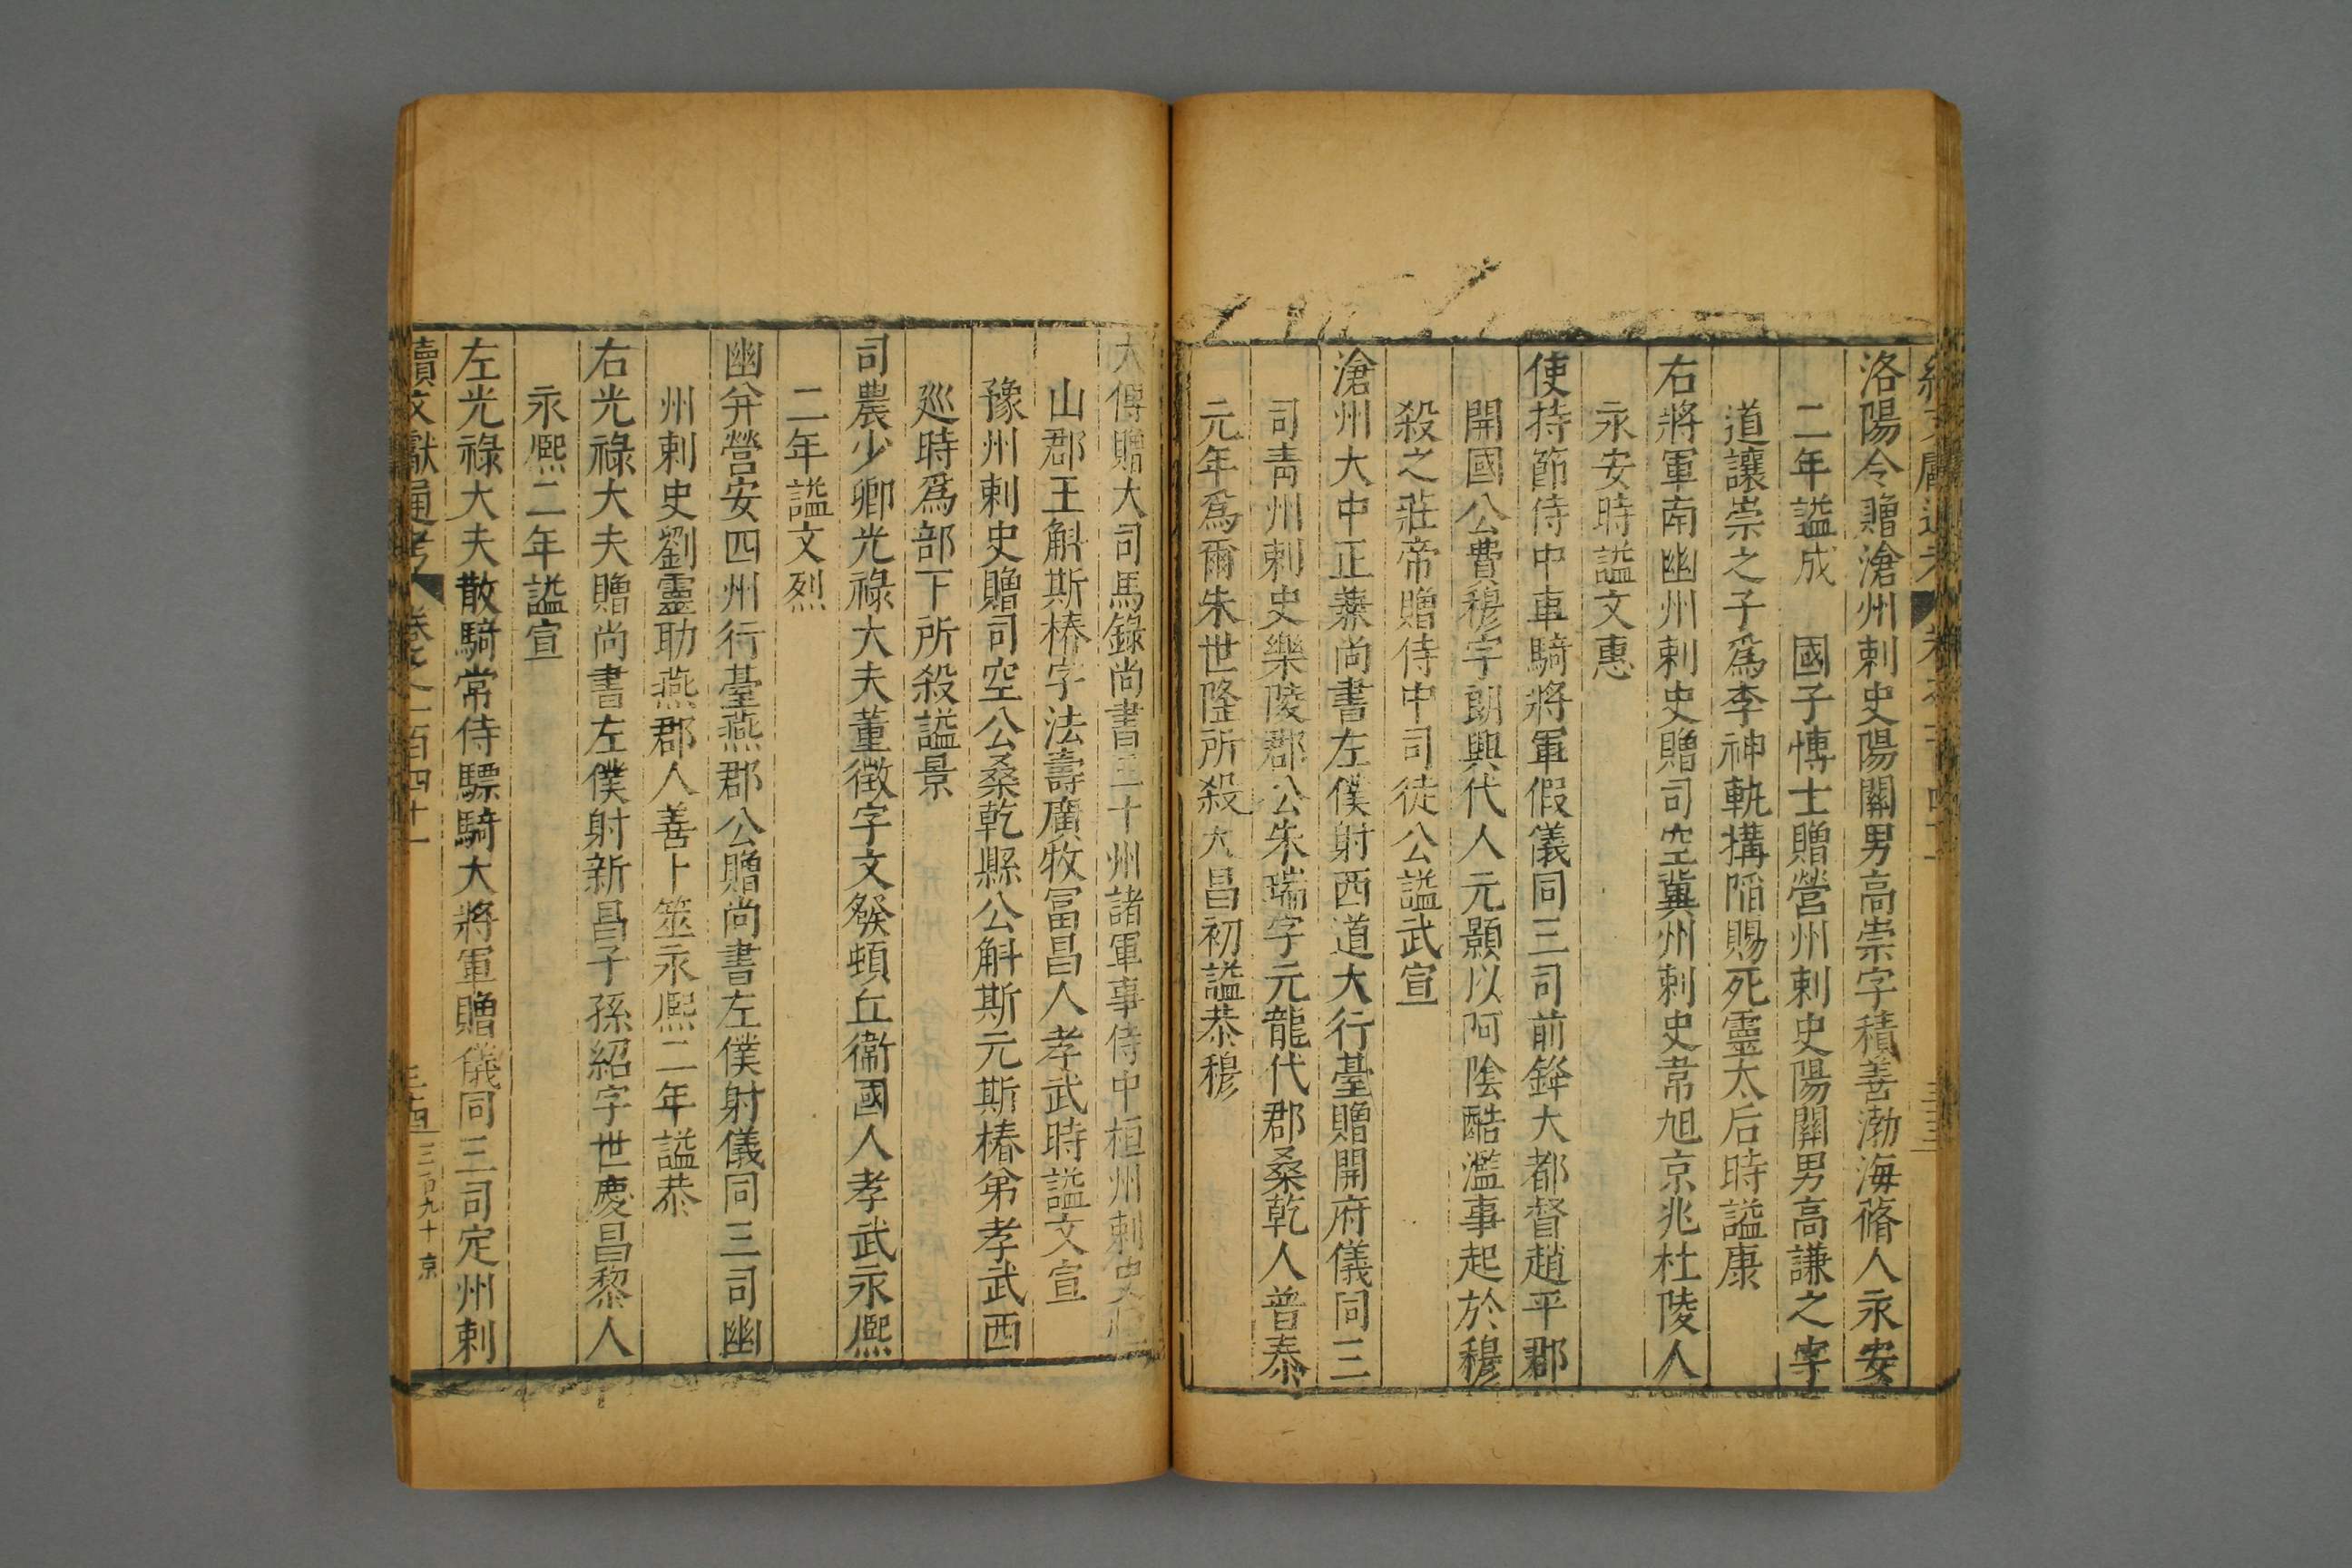 洛陽令贈滄州刺史陽關男高崇字積善渤海脩人永安
二年謚成 國子愽士贈營州刺史陽關男高謙之字
道讓崇之子爲李神軌搆陷賜死靈太后時謚康
右將軍南幽州刺史贈司空冀州刺史常旭京兆杜陵人
永安時謚文惠
使持節侍中車騎將軍假儀同三司前鋒大都督趙平郡
開國公費穆字朗興代人元顥以阿陰酷濫事起於穆
殺之莊帝贈侍中司徒公謚武宣
滄州大中正兼尚書左僕射西道大行臺贈開府儀同三
司青州刺史樂陵郡公朱瑞字元龍代郡桑乾人普泰
元年爲爾朱世隆所殺大昌初謚恭穆
大傅贈大司馬錄尚書三十州諸軍事侍中桓州刺史
山郡王斛斯椿字法壽廣牧冨昌人孝武時謚文宣
豫州刺史贈司空公桑乾縣公斛斯元斯椿弟孝武西
廵時爲部下所殺謚景
司農少卿光祿大夫董徵字文發頓丘衞國人孝武永熈
二年謚文烈
幽并營安四州行臺燕郡公贈尚書左僕射儀同三司幽
州刺史劉靈助燕郡人善卜筮永熈二年謚恭
右光祿大夫贈尚書左僕射新昌子孫紹字世慶昌黎人
永熈二年謚宣
左光祿大夫散騎常侍驃騎大將軍贈儀同三司定州刺
續文獻通考 卷之一百四十一 三百九十 京